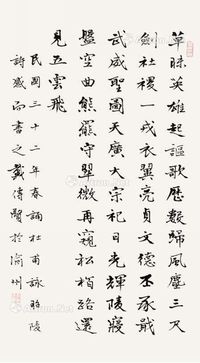 草昧英雄起謳歌歷數歸風塵三尺
劍社稷一戎衣翼亮貞文德丕承戢
武威聖圖天廣大宗祀日光輝陵寢
盤空曲熊羆守翠微再窺松栢路還
見五雲飛
民國三十二年春誦杜甫詠昭陵
詩感而書之戴傳賢於渝州